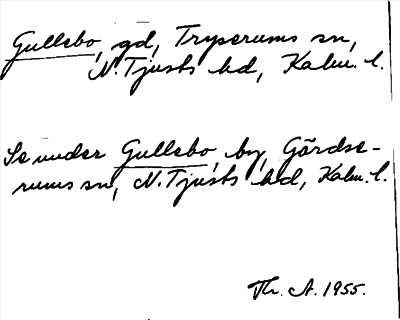 Gullebo, gd, Tryserums sn,
N. Tjusts hd, Kalm. l.
Se under Gullebo, by, Gärdse-
rums sn, N. Tjusts hd, Kalm. l.
Th. A. 1955.